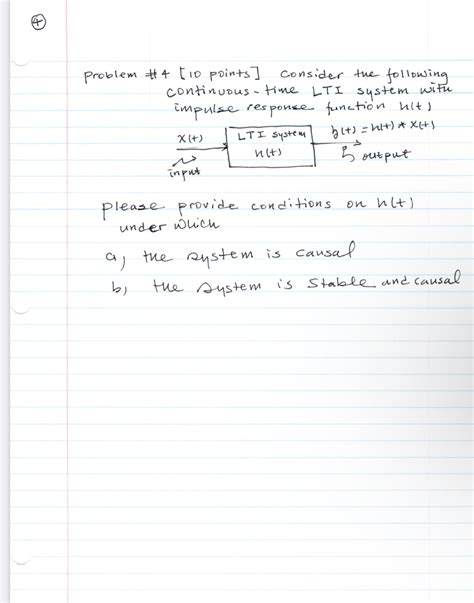 4
Problem #4 [10 points] Consider the following
continuous-time LTI system with
impulse response function h(t)
x(t) LTI system y(t) = h(t) * x(t)
h(t)
input output
please provide conditions on h(t)
under which
a, the system is causal
b, the system is stable and causal